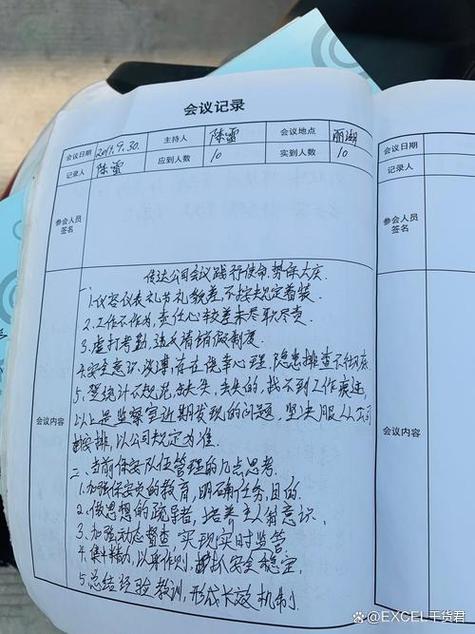 会议记录
会议日期 2019.9.30. 主持人 陈雷 会议地点 丽湖
记录人 陈雷 应到人数 10 实到人数 10
参会人员
签名
传达公司会议践行使命,势保大庆.
一、
1.仪容仪表礼节礼貌差,不按规定着装.
2.工作不作为,责任心较差未尽职尽责.
3.虚打考勤,违反请销假制度.
4.安全意识淡薄存在侥幸心理,隐患排查不彻底.
5.登统计不规范缺失,丢失的,找不到工作痕迹,
以上是监察室近期发现的问题,坚决服从公司
按排,以公司规定为准.
二、当前保安队伍管理的几点思考.
1.加强保安员的教育,明确任务,目的.
2.做思想的疏导者,培养主人翁意识,
3.加强动态督查 实现实时监管
4.集中精力,以身作则,狠抓安全稳定.
5.总结经验教训,形成长效机制
会议内容
会议日期
记录人
参会人员
签名
会议内容
@EXCEL干货君